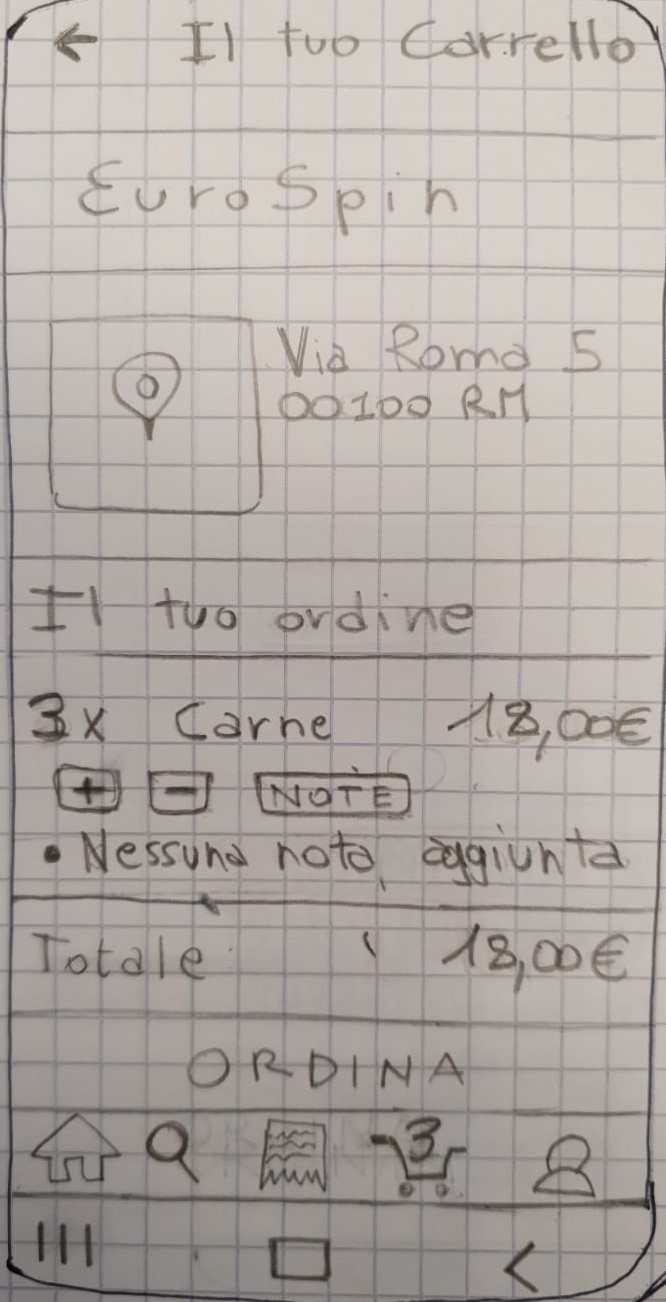 ← Il tuo Carrello
EuroSpin
Via Roma 5
00100 RM
Il tuo ordine
3x Carne 18,00€
+ - NOTE
• Nessuna nota aggiunta
Totale 18,00€
ORDINA
3